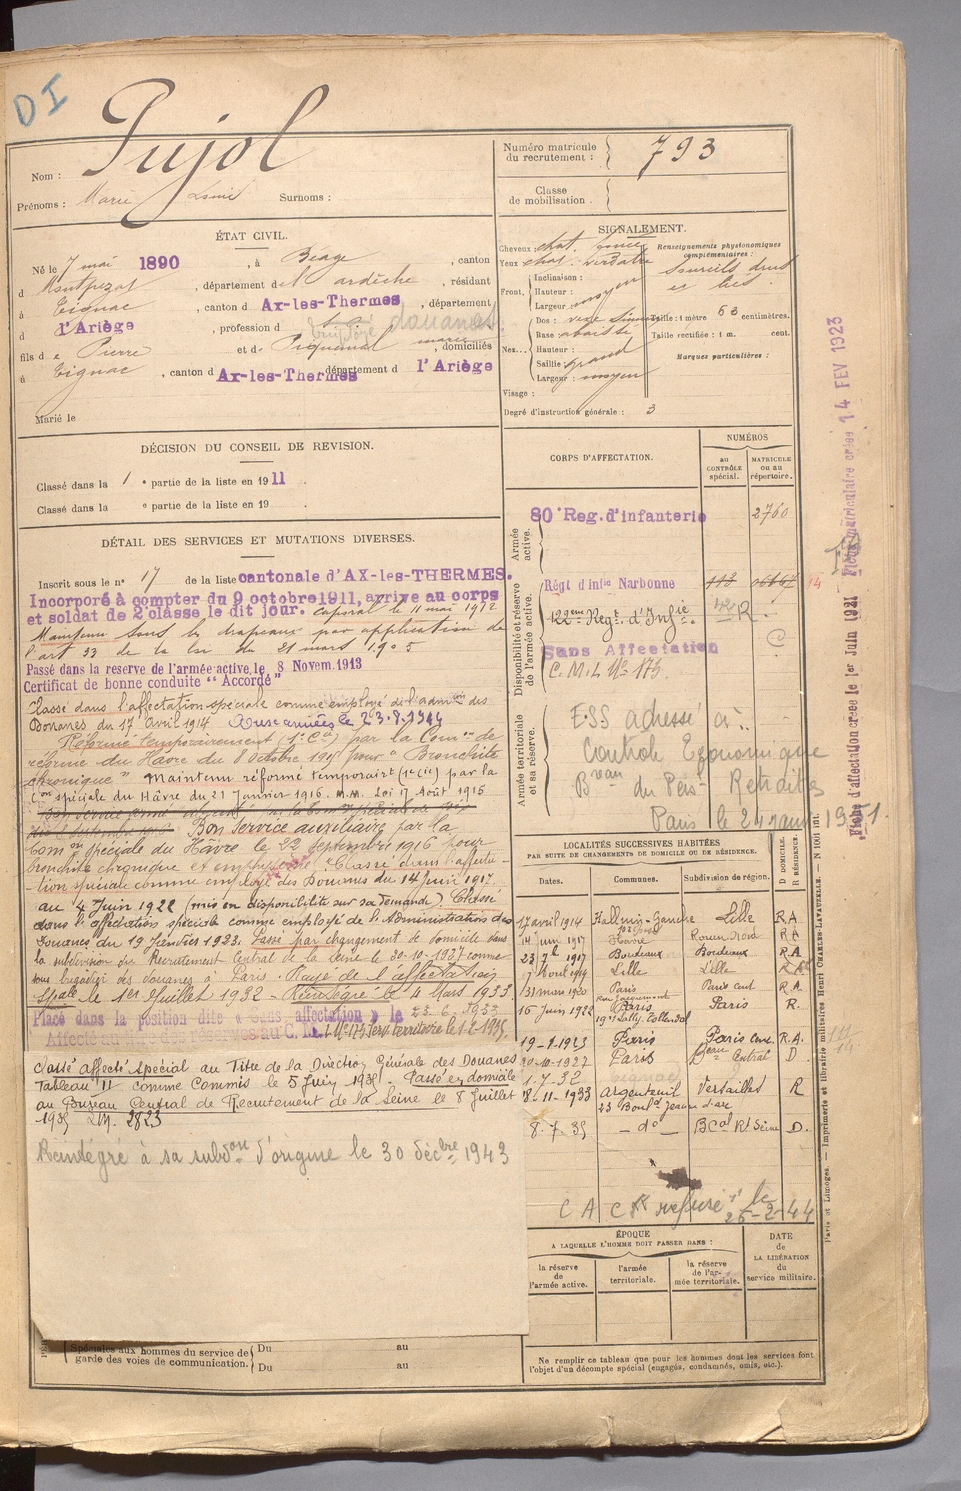 DI
Nom : Pujol
Prénoms : Marie Louis Surnoms :
Numéro matricule
du recrutement : 793
Classe
de mobilisation.
ÉTAT CIVIL.
Né le 7 mai 1890, à Béage, canton
d Montpezat, département de l'ardèche, résidant
à Tignac, canton d Ax-les-Thermes, département
d l'Ariège, profession d douanes.
fils de Pierre et de Piquemal marie, domiciliés
à Tignac, canton d Ax-les-Thermes département d l'Ariège
Marié le
SIGNALEMENT.
Cheveux : chat. foncé
Yeux chat. verdâtre
Front. Inclinaison :
Hauteur :
Largeur : moyen
Nez... Dos :
Base abaissé
Hauteur :
Saillie grand
Largeur : moyen
Visage :
Degré d'instruction générale : 3
Renseignements physionomiques
complémentaires :
Sourcils drus
et liés.
Taille : 1 mètre 63 centimètres.
Taille rectifiée : 1 m. cent.
Marques particulières :
DÉCISION DU CONSEIL DE REVISION.
Classé dans la 1 e partie de la liste en 1911
Classé dans la e partie de la liste en 19
DÉTAIL DES SERVICES ET MUTATIONS DIVERSES.
Inscrit sous le n° 17 de la liste cantonale d'AX-les-THERMES.
Incorporé à compter du 9 octobre 1911, arrive au corps
et soldat de 2e classe le dit jour. Caporal le 11 mai 1912
Maintenu sous les drapeaux par application de
l'art 33 de la loi du 21 mars 1905
Passé dans la reserve de l'armée active, le 8 Novem. 1913
Certificat de bonne conduite "Accordé"
Classé dans l'affectation spéciale comme employé de l'admon des
Douanes du 17 Avril 1914 aux armées le 23.8.1914
Réformé temporairement (1e Cie) par la Comon de
réforme du Havre du 8 octobre 1915 pour "Bronchite
chronique" Maintenu réformé temporairt (1e cie) par la
Con spéciale du Hâvre du 21 Janvier 1916. M.M. Loi 17 Août 1915
Bon Service auxiliaire par la
Comon spéciale du Hâvre le 22 Septembre 1916 pour
bronchite chronique et emphysème. Classé dans l'affecta-
-tion spéciale comme employé des Douanes du 14 Juin 1917.
au 4 Juin 1922 (mis en disponibilité sur sa demande). Classé
dans l'affectation spéciale comme employé de l'Administration des
Douanes du 19 Janvier 1923. Passé par changement de domicile dans
la subdivision du Recrutement Central de la Seine le 20-10-1927 comme
sous brigadier des douanes à Paris. Rayé de l'affectation
spale le 1er Juillet 1932 - Réintégré le 4 Mars 1933
Placé dans la position dite « Sans affectation » le 23.6.1933
Classé affecté spécial au Titre de la Direction Générale des Douanes
Tableau II comme Commis le 5 Juin 1935. Passé en domicile
au Bureau Central de Recrutement de la Seine le 8 Juillet
1935 2823
Réintégré à sa subdon d'origine le 30 décbre 1943
CORPS D'AFFECTATION.
NUMÉROS
au
CONTRÔLE
spécial.
MATRICULE
ou au
répertoire.
Armée
active.
80e Reg. d'infanterie 2760
Disponibilité et réserve
de l'armée active.
Régt d'Infie Narbonne 14
122ème Regt. d'Infie R.
Sans Affectation
C.M.L No 173.
Armée territoriale
et sa réserve.
ESS adressé à :
Contrôle Economique
Breau du Pers.
Paris le 24 janv 1951.
LOCALITÉS SUCCESSIVES HABITÉES
PAR SUITE DE CHANGEMENTS DE DOMICILE OU DE RÉSIDENCE.
Dates. Communes. Subdivision de région. D DOMICILE. R RÉSIDENCE.
17 avril 1914 Halluin Lille R.A
14 Juin 1917 Hâvre Rouen Nord R A
23 7e 1917 Bordeaux Bordeaux R.A
17 Août 1919 Lille Lille
31 mars 1920 Paris Paris cent R.A.
16 Juin 1922 Paris Paris R.
19 r. Lally-Tollendal
19-1-1923 Paris Paris cent R.A.
20-10-1927 Paris Beau Central D.
1.7.32
8-11-1933 Argenteuil Versailles R
23 Bould Jeanne d'arc
8.7.35 - do - BCal Rt Seine D.
C A C refusé le
25-2-44
ÉPOQUE
A LAQUELLE L'HOMME DOIT PASSER DANS :
la réserve
de
l'armée active.
l'armée
territoriale.
la réserve
de l'ar-
mée territoriale.
DATE
de
LA LIBÉRATION
du
service militaire.
Spéciales aux hommes du service de
garde des voies de communication. Du au
Du au
Ne remplir ce tableau que pour les hommes dont les services font
l'objet d'un décompte spécial (engagés, condamnés, omis, etc.).
Paris et Limoges. — Imprimerie et librairie militaires Henri CHARLES-LAVAUZELLE. — N 1001 int.
Fiche matriculaire créée 14 FEV 1923
Fiche d'affectation créée le 1er Juin 1921